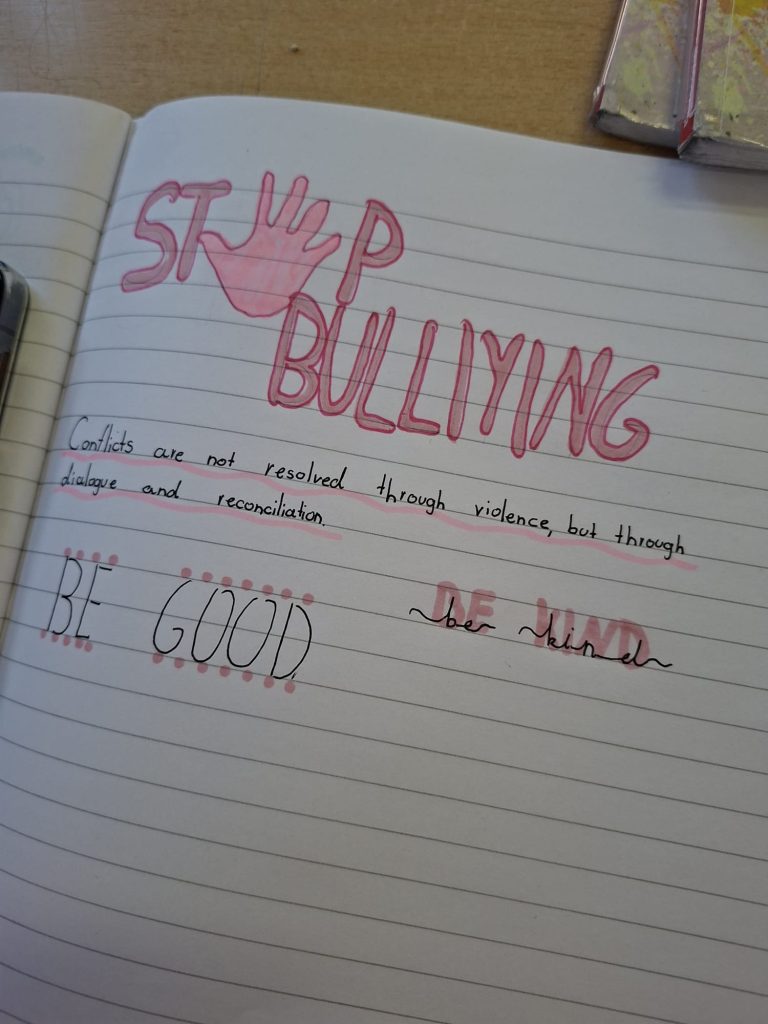 STOP
BULLIYING
Conflicts are not resolved through violence, but through
dialogue and reconciliation.
BE GOOD.
BE KIND
be kind